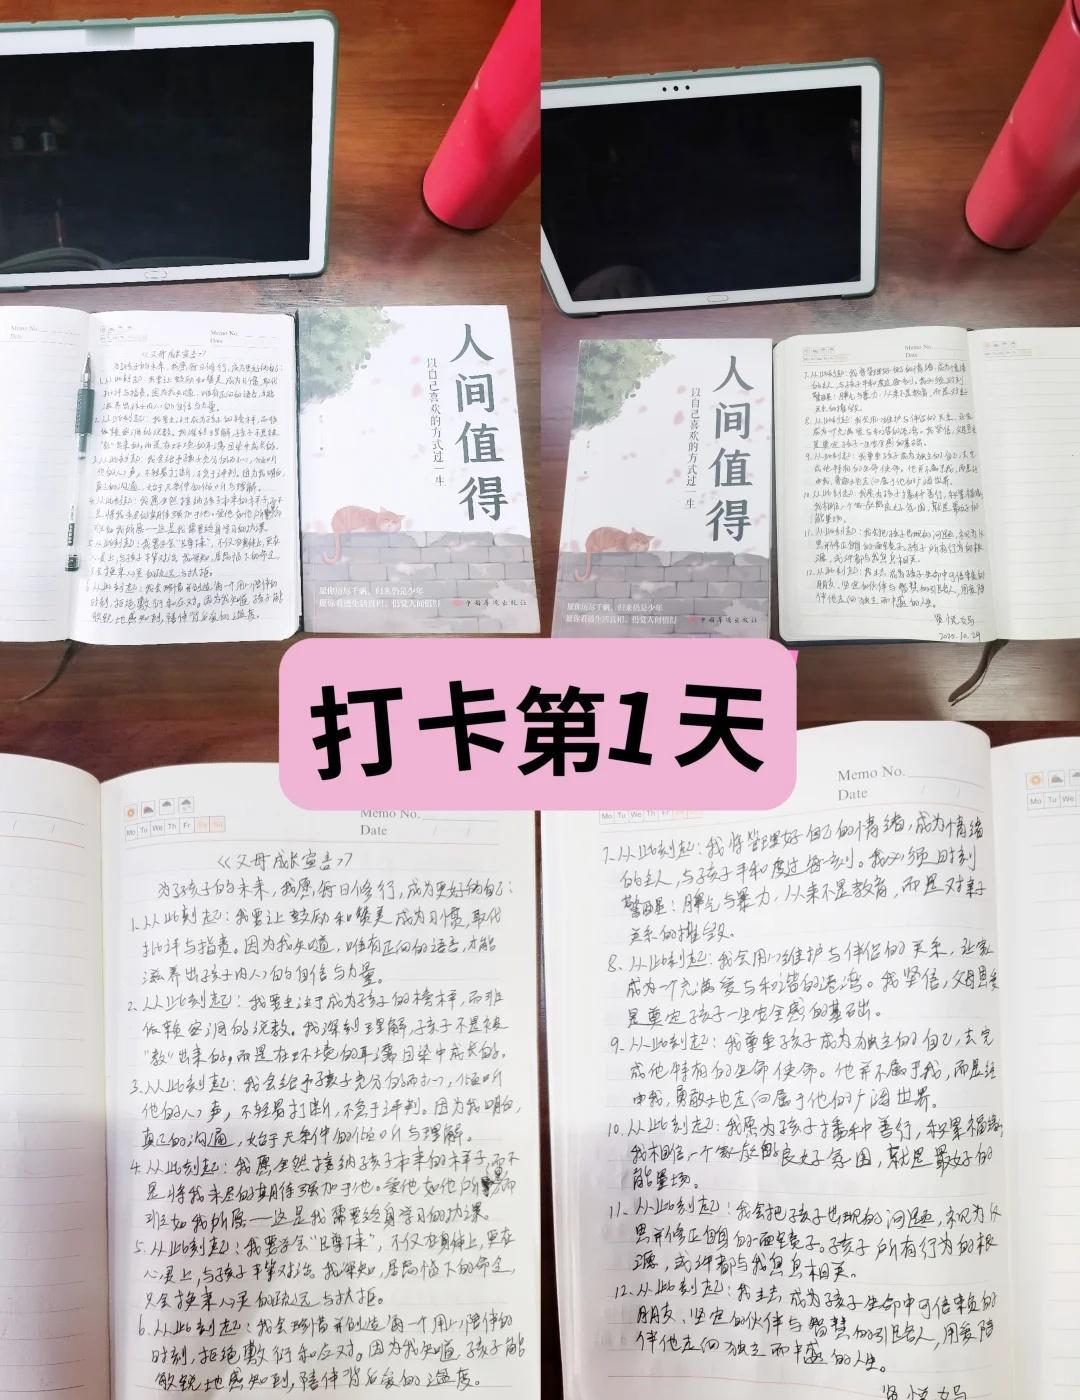 Memo No.
Date
Memo No.
Date
《父母成长宣言》
人间值得
以自己喜欢的方式过一生
愿你历尽千帆，归来仍是少年
愿你看透生活真相，仍觉人间值得
中国华侨出版社
Memo No.
Date
人间值得
以自己喜欢的方式过一生
愿你历尽千帆，归来仍是少年
愿你看透生活真相，仍觉人间值得
中国华侨出版社
2025.10.29
打卡第1天
Mo Tu We Th Fr Sa Su
Memo No.
Date
《父母成长宣言》
为了孩子的未来，我愿每日修行，成为更好的自己：
1、从此刻起：我要让鼓励和赞美成为习惯，取代
批评与指责。因为我知道，唯有正向的语言，才能
滋养出孩子内心的自信与力量。
2、从此刻起：我要专注于成为孩子的榜样，而非
依赖空洞的说教。我深刻理解，孩子不是被
“教”出来的，而是在环境的耳濡目染中成长的。
3、从此刻起：我会给予孩子充分的耐心，倾听
他的心声，不轻易打断，不急于评判。因为我明白，
真正的沟通，始于无条件的倾听与理解。
4、从此刻起：我愿全然接纳孩子本来的样子，而不
是将我未尽的期待强加于他。爱他如他所是，而
非如我所愿——这是我需要终身学习的功课。
5、从此刻起：我要学会“蹲下来”，不仅在身体上，更在
心灵上，与孩子平等对话。我深知，居高临下的命令，
只会换来心灵的疏远与抗拒。
6、从此刻起：我会珍惜并创造每一个用心陪伴的
时刻，拒绝敷衍和应对。因为我知道，孩子能
敏锐地感知到，陪伴背后爱的温度。
Memo No.
Date
Mo Tu We
7、从此刻起：我将管理好自己的情绪，成为情绪
的主人，与孩子平和度过每一刻。我必须时刻
警醒：脾气与暴力，从来不是教育，而是对亲子
关系的摧毁。
8、从此刻起：我会用心维护与伴侣的关系，让家
成为一个充满爱与和谐的港湾。我坚信，父母恩爱
是奠定孩子一生安全感的基石。
9、从此刻起：我尊重孩子成为独立的自己，去完
成他特有的生命使命。他并不属于我，而是经
由我，勇敢地走向属于他的广阔世界。
10、从此刻起：我愿为孩子播种善行，积累福德，
我相信，一个家庭的良好氛围，就是最好的
能量场。
11、从此刻起：我会把孩子出现的问题，视为反
思并修正自身的一面镜子。孩子所有行为的根
源，或许都与我息息相关。
12、从此刻起：我立志，成为孩子生命中可信赖的
朋友、坚定的伙伴与智慧的引路人，用爱陪
伴他走向独立而丰盛的人生。